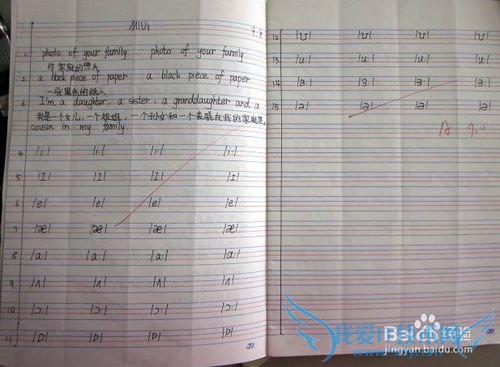 M1U1
9.9
1. photo of your family photo of your family
你家庭的照片
2. a black piece of paper a black piece of paper
一张黑色的纸
3. I'm a daughter, a sister, a granddaughter and a
我是一个女儿，一个姐姐，一个孙女和一个表姐在我的家庭里。
cousin in my family.
4 /i:/ /i:/ /i:/ /i:/
5 /I/ /I/ /I/ /I/
6 /e/ /e/ /e/ /e/
7 /æ/ /æ/ /æ/ /æ/
8 /a:/ /a:/ /a:/ /a:/
9 /ʌ/ /ʌ/ /ʌ/ /ʌ/
10 /ɔ:/ /ɔ:/ /ɔ:/ /ɔ:/
11 /ɒ/ /ɒ/ /ɒ/ /ɒ/
12 /ʊ/ /ʊ/ /ʊ/ /ʊ/
13 /u:/ /u:/ /u:/ /u:/
14 /ɜ:/ /ɜ:/ /ɜ:/ /ɜ:/
15 /ə/ /ə/ /ə/ /ə/
A 9.11
Baidu 经验
jingyan.baidu.com